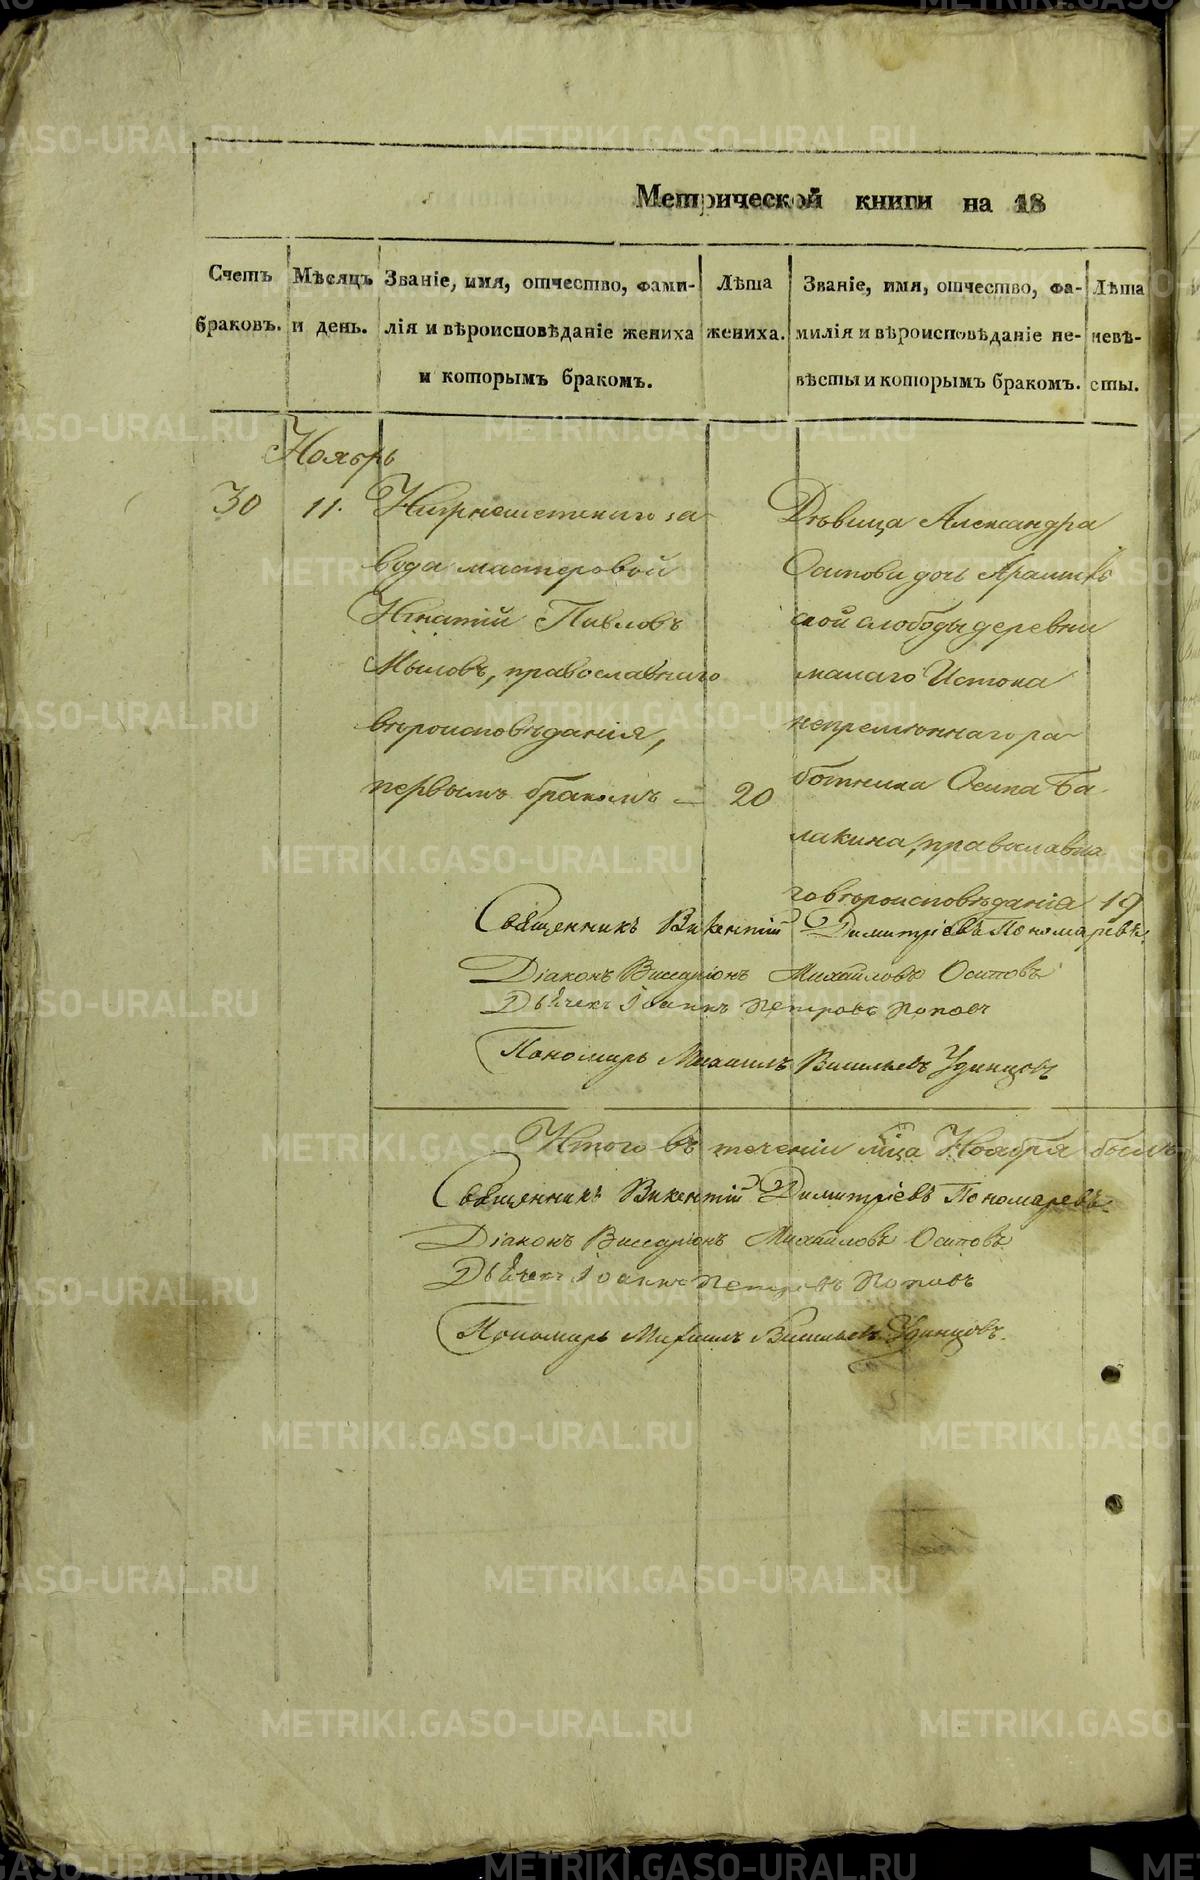 Метрической книги на 18
Счетъ браковъ.
Мѣсяцъ и день.
Званіе, имя, отчество, фами-
лія и вѣроисповѣданіе жениха
и которымъ бракомъ.
Лѣта
жениха.
Званіе, имя, отчество, фа-
милія и вѣроисповѣданіе не-
вѣсты и которымъ бракомъ.
Лѣта
невѣ-
сты.
Ноябрь
30 11.
Нижнеисетскаго за-
вода мастеровой
Игнатій Павловъ
Мыловъ, православнаго
вѣроисповѣданія,
первымъ бракомъ — 20
Дѣвица Александра
Осипова дочь Арамилв
ской слободы деревни
малаго Истока
непремѣннаго ра-
ботника Осипа Ба-
лакина, православна
го вѣроисповѣданія 19
Священникъ Викентій Димитріевъ Пономаревъ.
Діаконъ Виссаріонъ Михайловъ Осиповъ
Дьячекъ Іоаннъ Петровъ Поповъ
Пономарь Михаилъ Васильевъ Удинцовъ
Итого въ теченіи мѣца Ноября было
Священникъ Викентій Димитріевъ Пономаревъ.
Діаконъ Виссаріонъ Михайловъ Осиповъ
Дьячекъ Іоаннъ Петровъ Поповъ
Пономарь Михаилъ Васильевъ Удинцовъ.
METRIKI.GASO-URAL.RU